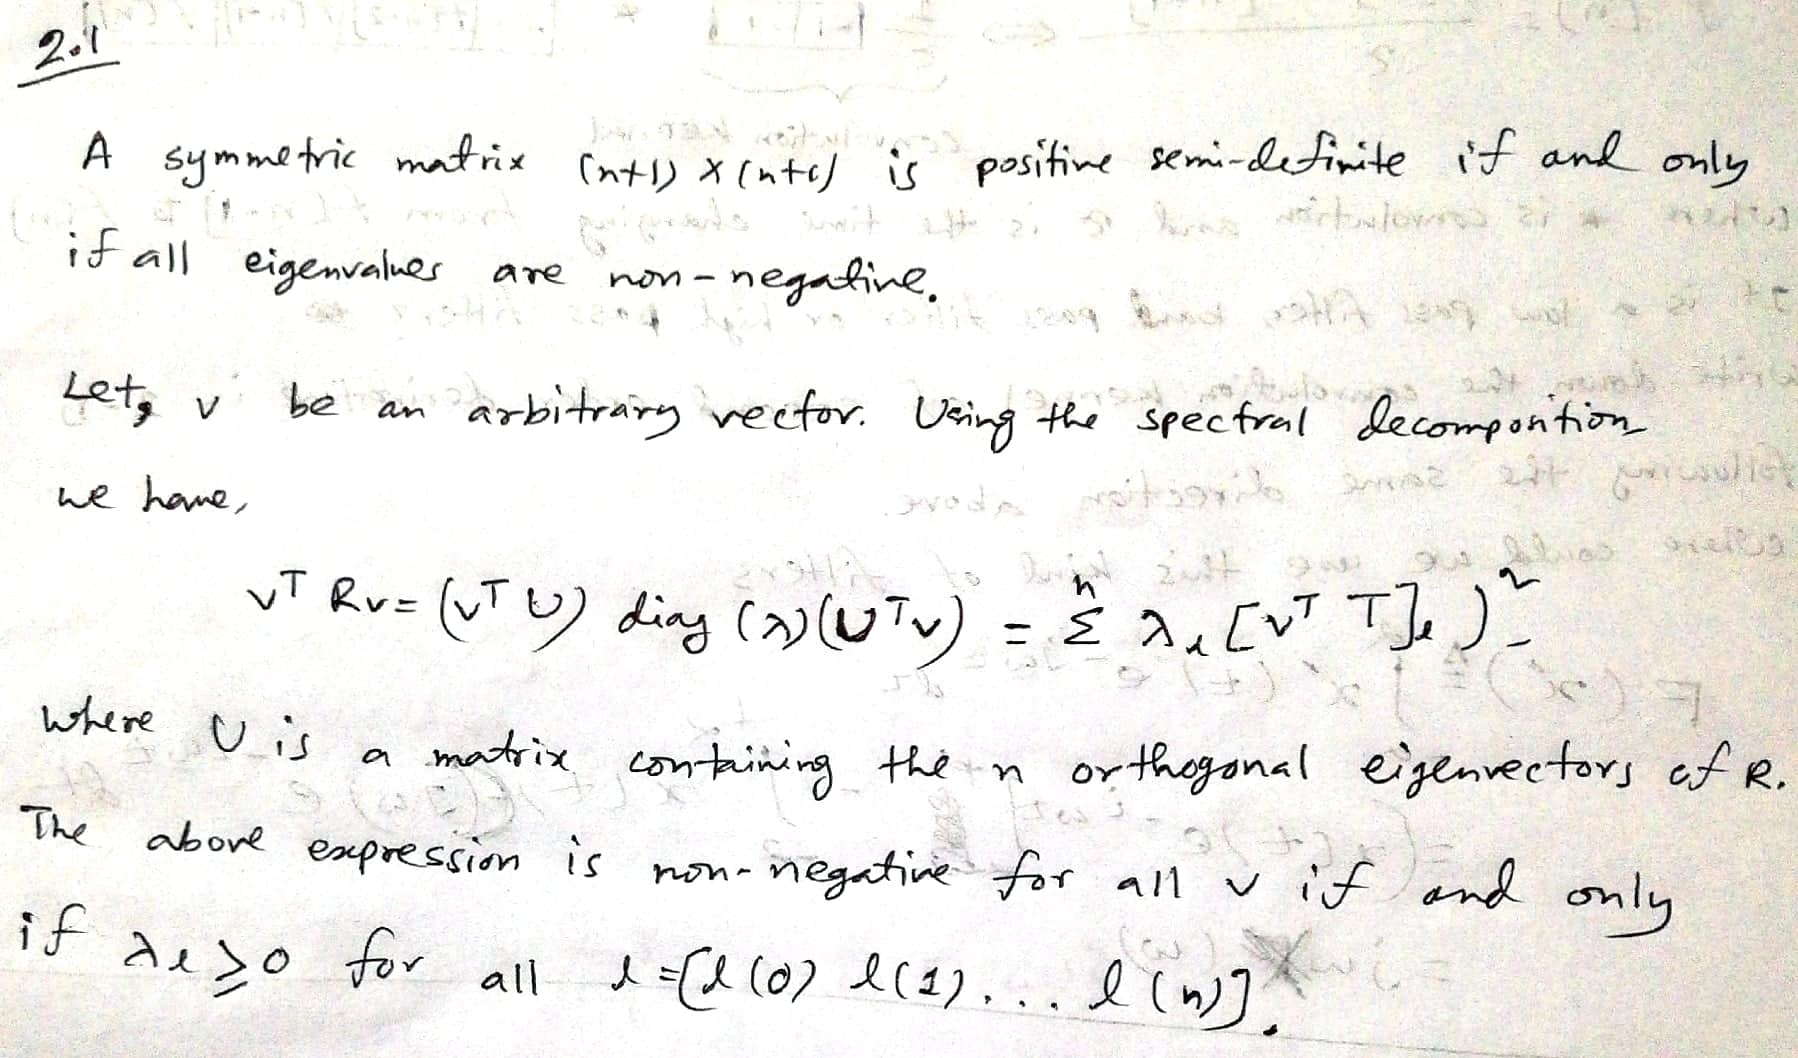 2.1
A symmetric matrix (n+1) x (n+1) is positive semi-definite if and only
if all eigenvalues are non-negative.
Let, v be an arbitrary vector. Using the spectral decomposition
we have,
v^T Rv = (v^T U) diag (λ)(U^T v) = Σ^n λ_l [v^T T]_l )^2
where U is a matrix containing the n orthogonal eigenvectors of R.
The above expression is non-negative for all v if and only
if λ_l ≥ 0 for all l = [l(0) l(1)... l(n)].